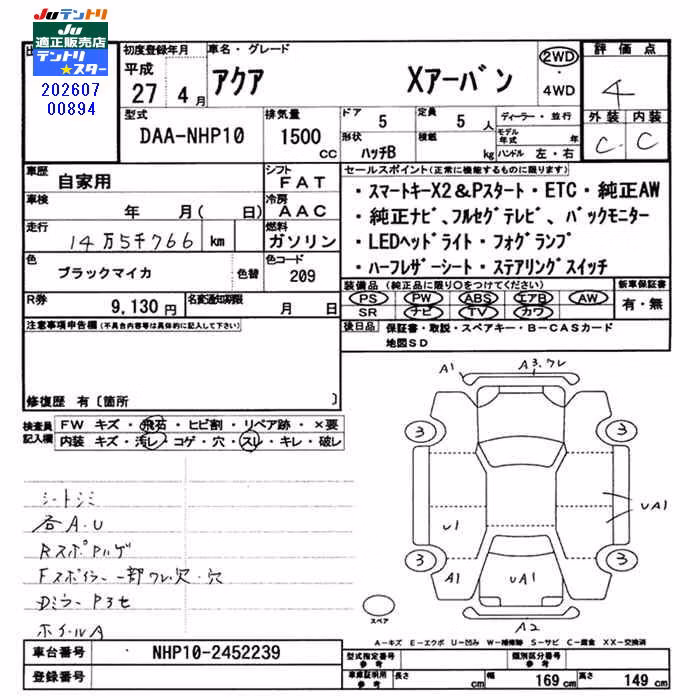 Juテントリ
Ju
適正販売店
テントリ
★スター
202607
00894
初度登録年月
平成
27 4月
車名・グレード
アクア Xアーバン
2WD
・
4WD
評価点
4
外装 内装
C C
型式
DAA-NHP10
排気量
1500
CC
ドア
5
定員
5人
形状
ハッチB
積載
kg
ディーラー・並行
モデル年式 年
ハンドル 左・右
車歴
自家用
シフト
FAT
車検
年 月( 日)
冷房
AAC
走行
14万5千766 km
燃料
ガソリン
色
ブラックマイカ
色替
色コード
209
R券
9,130円
名変通知期限
月 日
セールスポイント(正常に機能するものに限ります)
・スマートキーX2&Pスタート・ETC・純正AW
・純正ナビ、フルセグテレビ、バックモニター
・LEDヘッドライト・フォグランプ
・ハーフレザーシート・ステアリングスイッチ
装備品(純正品に限り○をつけてください)
PS PW ABS エアB AW
SR ナビ TV カワ
新車保証書
有・無
後日品 保証書・取説・スペアキー・B-CASカード
地図SD
注意事項申告欄(不具合内容等は具体的に記入して下さい)
修復歴 有〔箇所 〕
検査員
記入欄
FW キズ・飛石・ヒビ割・リペア跡・×要
内装 キズ・汚レ・コゲ・穴・スレ・キレ・破レ
シートシミ
各A.U
RスポPハゲ
Fスポイラー一部ワレ欠・穴
Dミラー P3セ
ホイールA
A1
A3.ワレ
3
3
U1
UA1
3
3
A1
UA1
A2
スペア
A-キズ E-エクボ U-凹み W-補修跡 S-サビ C-腐食 XX-交換済
車台番号
NHP10-2452239
登録番号
型式指定番号
参考
類別区分番号
参考
車庫証明用
参考
長さ
cm
幅
169cm
高さ
149cm